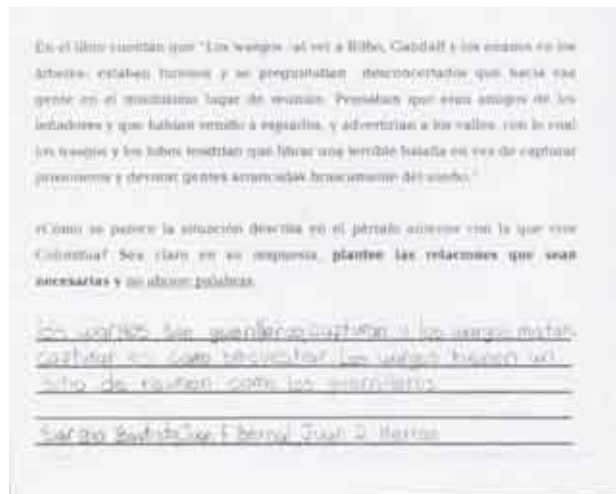 En el libro cuentan que "Los wargos -al ver a Bilbo, Gandalf y los enanos en los
árboles- estaban furiosos y se preguntaban desconcertados que hacía esa
gente en el mismísimo lugar de reunión. Pensaban que eran amigos de los
leñadores y que habían venido a espiarlos, y advertirían a los valles, con lo cual
los trasgos y los lobos tendrían que librar una terrible batalla en vez de capturar
prisioneros y devorar gentes arrancadas bruscamente del sueño."
¿Cómo se parece la situación descrita en el párrafo anterior con la que vive
Colombia? Sea claro en su respuesta, plantee las relaciones que sean
necesarias y no ahorre palabras.
los wargos son guerrilleros capturan y los wargos matan
capturar es como secuestrar los wargos tienen un
sitio de reunion como los guerrilleros
Sergio Bautista Juan F Bernal Juan D.